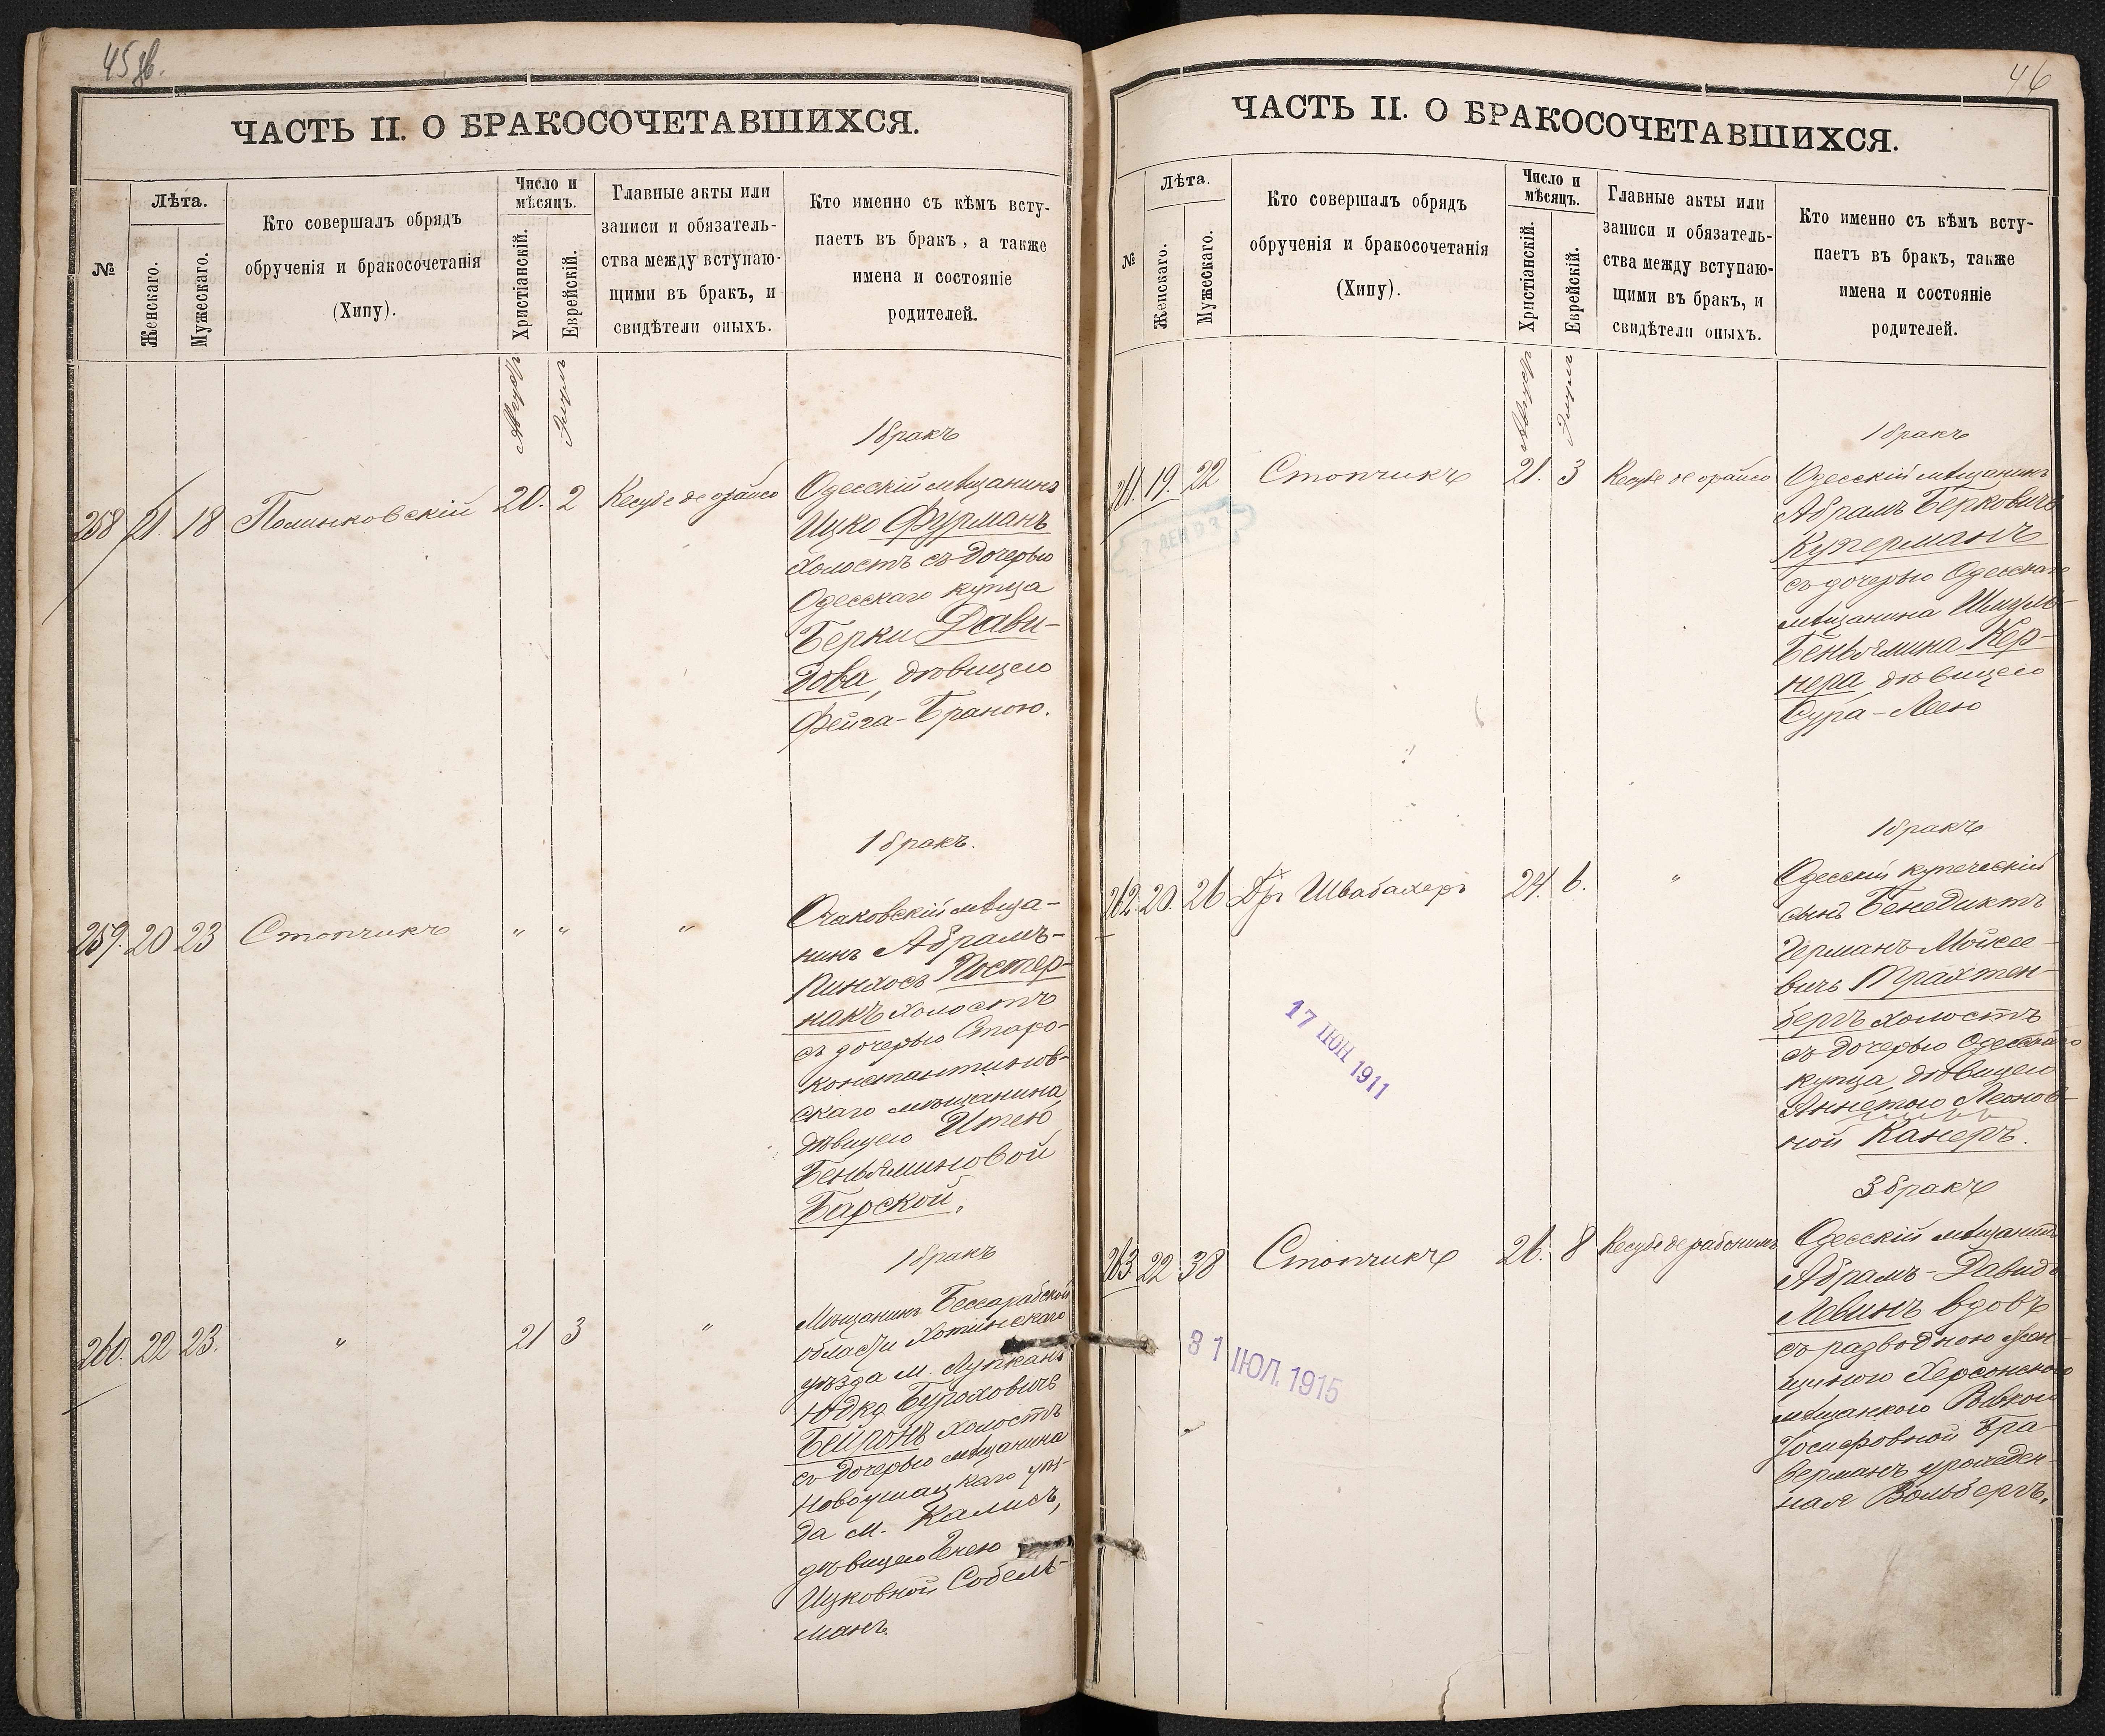 45 об.
ЧАСТЬ II. О БРАКОСОЧЕТАВШИХСЯ.
№
Лѣта.
Женскаго.
Мужескаго.
Кто совершалъ обрядъ
обрученія и бракосочетанія
(Хипу).
Число и
мѣсяцъ.
Христіанскій.
Еврейскій.
Главные акты или
записи и обязатель-
ства между вступаю-
щими въ бракъ, и
свидѣтели оныхъ.
Кто именно съ кѣмъ всту-
паетъ въ бракъ, а также
имена и состояніе
родителей.
Августъ
Элулъ
1 бракъ
258 21. 18 Полинковскій 20. 2 Кесубе де орайсо
Одесскій мѣщанинъ
Ицко Фурманъ
холостъ съ дочерью
Одесскаго купца
Берки Дави-
дова, дѣвицею
Фейга-Браною.
1 бракъ.
259. 20 23 Стопчикъ " " "
Очаковскій мѣща-
нинъ Абрамъ-
Пинхосъ Постер-
накъ холостъ
съ дочерью Старо-
константинов-
скаго мѣщанина,
дѣвицею Итею
Беньяминовой
Барской.
1 бракъ
260. 22 23. " 21 3 "
Мѣщанинъ Бессарабской
области Хотинскаго
уѣзда м. Лупканъ
Юдко Буроховичъ
Бейронъ холостъ
съ дочерью мѣщанина
Новоушицкаго уѣз-
да м. Калюсъ,
дѣвицею Енею
Ицковной Собель-
манъ.
46
ЧАСТЬ II. О БРАКОСОЧЕТАВШИХСЯ.
№
Лѣта.
Женскаго.
Мужескаго.
Кто совершалъ обрядъ
обрученія и бракосочетанія
(Хипу).
Число и
мѣсяцъ.
Христіанскій.
Еврейскій.
Главные акты или
записи и обязатель-
ства между вступаю-
щими въ бракъ, и
свидѣтели оныхъ.
Кто именно съ кѣмъ всту-
паетъ въ бракъ, также
имена и состояніе
родителей.
Августъ
Элулъ
1 бракъ
261. 19. 22 Стопчикъ 21. 3 Кесубе де орайсо
Одесскій мѣщанинъ
Абрамъ Берковичъ
Куперманъ
съ дочерью Одесскаго
мѣщанина Шмуль-
Беньямина Кер-
нера, дѣвицею
Сура-Леею
1 бракъ
262. 20. 26 Др. Швабахеръ 24. 6. "
Одесскій купеческій
сынъ Бенедиктъ
Германъ Мойсее-
вичъ Трахтен-
бергъ холостъ
съ дочерью Одесскаго
купца, дѣвицею
Аннетою Леонов-
ной Канеръ.
17 ІЮН 1911
3 бракъ
263 22 38 Стопчикъ 26. 8 Кесубе де рабонимъ
Одесскій мѣщанинъ
Абрамъ-Давидъ
Левинъ вдовъ
съ разводною жен-
щиною Херсонскою
мѣщанкою Ривкою
Іосифовной Бра-
верманъ урожден-
ная Вольбергъ.
31 ІЮЛ. 1915